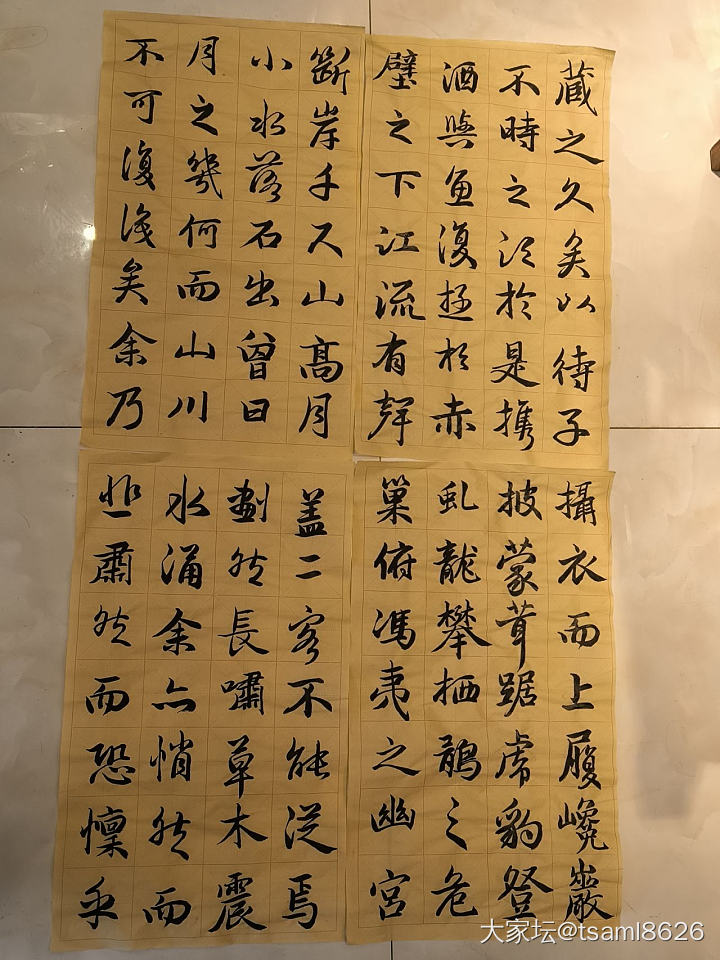 藏之久矣以待子
不時之須於是攜
酒與魚復遊於赤
壁之下江流有聲
斷岸千尺山高月
小水落石出曾日
月之幾何而山川
不可復識矣余乃
攝衣而上履巉巖
披蒙茸踞虎豹登
虬龍攀栖鶻之危
巢俯馮夷之幽宮
蓋二客不能從焉
劃然長嘯草木震
水涌余亦悄然而
悲肅然而恐懍乎
大家坛@tsaml8626